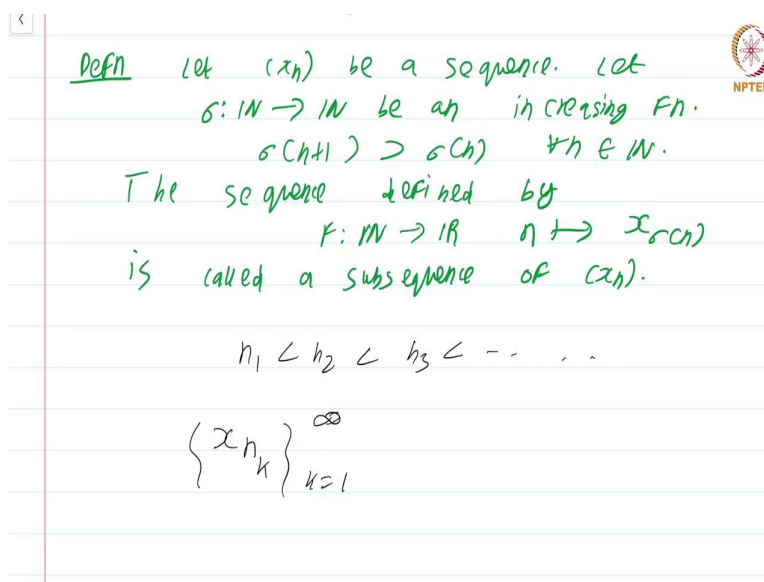 Defn Let (xn) be a sequence. Let
σ: IN → IN be an increasing Fn.
σ(n+1) > σ(n) ∀n ∈ IN.
The sequence defined by
F: IN → IR n ↦ x_σ(n)
is called a subsequence of (xn).
n₁ < n₂ < n₃ < -- . .
{x_{n_k}}_{k=1}^∞
NPTEL